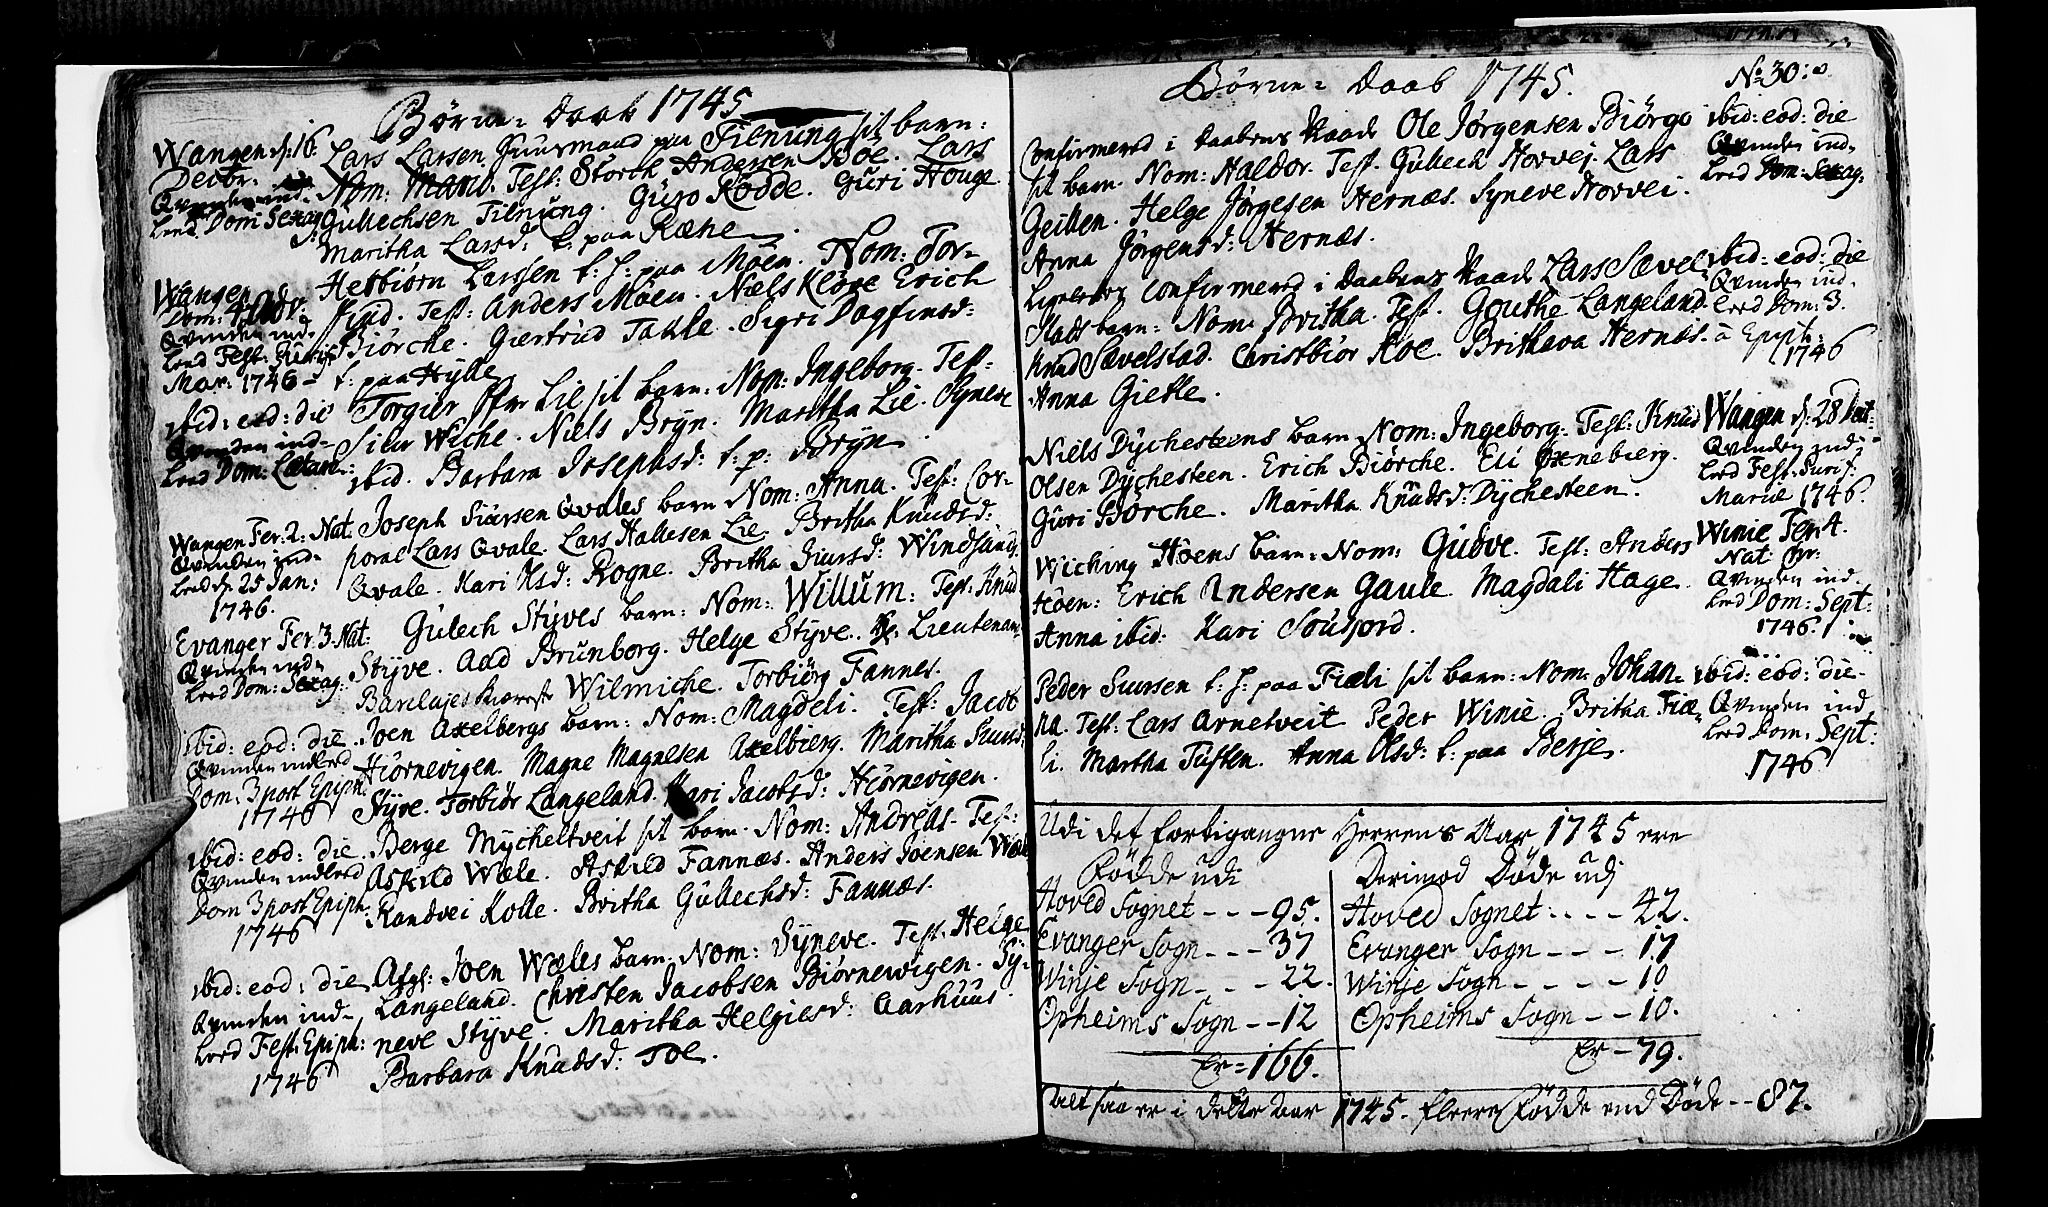 Börne- Daab 1745
Wangen d: 16.
Decbr.
Qvinden ind-
leed. Dom: Sexag:
Lars Larsen Huusmand paa Tilnung sit barn:
Nom: Test: Störch Andersen Böe. Lars
Gullechsen Tilnung. Guro Rodde. Guri Houge
Maritha Larsd: t: paa Ræhe
Wangen
Dom: 4. Adv:
Qvinden ind-
leed Fest: Purif:
Mar: 1746 -
Herbiörn Larssen t: h: paa Möen. Nom: Tor-
find. Test: Anders Möen. Niels Klöve Erich
Biörche. Giertrud Takle. Sigri Dagfinsd:
t: paa Hylle
ibid: eod: die
Qvinden ind-
leed Dom: Lætare:
Torgier Lie sit barn: Nom: Ingeborg. Test:
Siur Wiche. Niels Bryn. Maritha Lie. Syneve
ibid. Barbara Josephsd: t: p: Bryn
Wangen Fer: 2: Nat:
Qvinden ind-
leed d: 25 Jan:
1746.
Joseph Siursen Qvales barn Nom: Anna. Test: Cor-
poral Lars Qvale. Lars Hallesen Lie. Britha Knudsd:
Qvale. Kari Rogne. Britha Siursd:
Evanger Fer: 3. Nat:
Qvinden ind-
leed Dom: Sexag:
Gulech Styves barn: Nom: Willum: Test: Knud
Styve. Aad Brunborg. Helge Styve. Lieutenan
Wilmiche. Torbiörg Fannes.
ibid: eod: die
Qvinden indleed
Dom: 3 post Epiph:
1746
Joen Axelbergs barn: Nom: Magdeli. Test: Jacob
Hiörnevigen. Magne Magnesen Axelbierg. Maritha Siursd:
Styve. Torbiör Langeland. Kari Jacobsd: Hiörnevigen.
ibid: eod: die
Qvinden indleed
Dom 3 post Epiph:
1746
Berge Mycheltveit sit barn. Nom: Andreas. Test:
Askild Wæle. Askild Fannæs. Anders Joensen Wæle
Randvei Kolle. Britha Gullechsd: Fannæs.
ibid: eod: die
Qvinden ind-
leed Fest: Epiph:
1746
Afgl: Joen Wæles barn. Nom: Syneve. Test: Helge
Langeland. Christen Jacobsen Biörnewigen. Sy-
neve Styve. Maritha Helgiesd: Aarhuus
Barbara Knudsd: Toe.
Börne- Daab 1745.
No 30:
Confirmered i Daabens Naade Ole Jörgensen Biörgo
sit barn. Nom: Haldor. Test. Gullech Horvei. Lars
Geilen. Helge Jörgesen Hernæs. Syneve Horvei.
Anna Jörgensd: Hernæs.
ibid: eod: die
Qvinden ind-
leed Dom: Sexag:
Ligeledes Confirmered i Daabens Naade Lars Sævel-
stads barn: Nom: Britha. Test. Gouthe Langeland.
Knud Sævelstad. Christbior Roe. Brithava Hernæs.
Anna Gielle.
ibid: eod: die
Qvinden ind-
leed Dom: 3.
a Epiph:
1746
Niels Dychesteens barn Nom: Ingeborg: Test: Knud
Olsen Dychesteen. Erich Biörche. Eli Öxnebierg.
Guri Börche. Maritha Knudsd: Dychesteen.
Wangen d: 28 Dect:
Qvinden ind-
leed Fest: Purif:
Mariæ 1746.
Wiching Höens barn: Nom: Gudve. Test: Anders
Höen: Erich Andersen Gaule. Magdali Hage.
Anna ibid: Kari
Winie Fer: 4.
Nat: Chr:
Qvinden ind-
leed Dom: Sept:
1746.
Peder Siursen t. h: paa Fiæli sit barn: Nom: Johan-
na. Test: Lars Arnetveit Peder Winie. Britha Fiæ-
li. Martha Tuften. Anna Olsd: t: paa Berje.
ibid: eod: die-
Qvinden ind-
leed Dom: Sept:
1746
Udi det forbigangne Herrens Aar 1745 ere
Födde udi
Hoved Sognet - - - 95.
Evanger Sogn - - - 37
Winje Sogn - - - 22.
Opheims Sogn - - 12
Er = 166.
Derimod Döde udj
Hoved Sognet: - - - 42.
Evanger Sogn - - - 17
Winje Sogn - - - - 10
Opheims Sogn - - 10.
Er - 79.
Altsaa er i dette Aar 1745. fleere Födde end Döde - - 87.